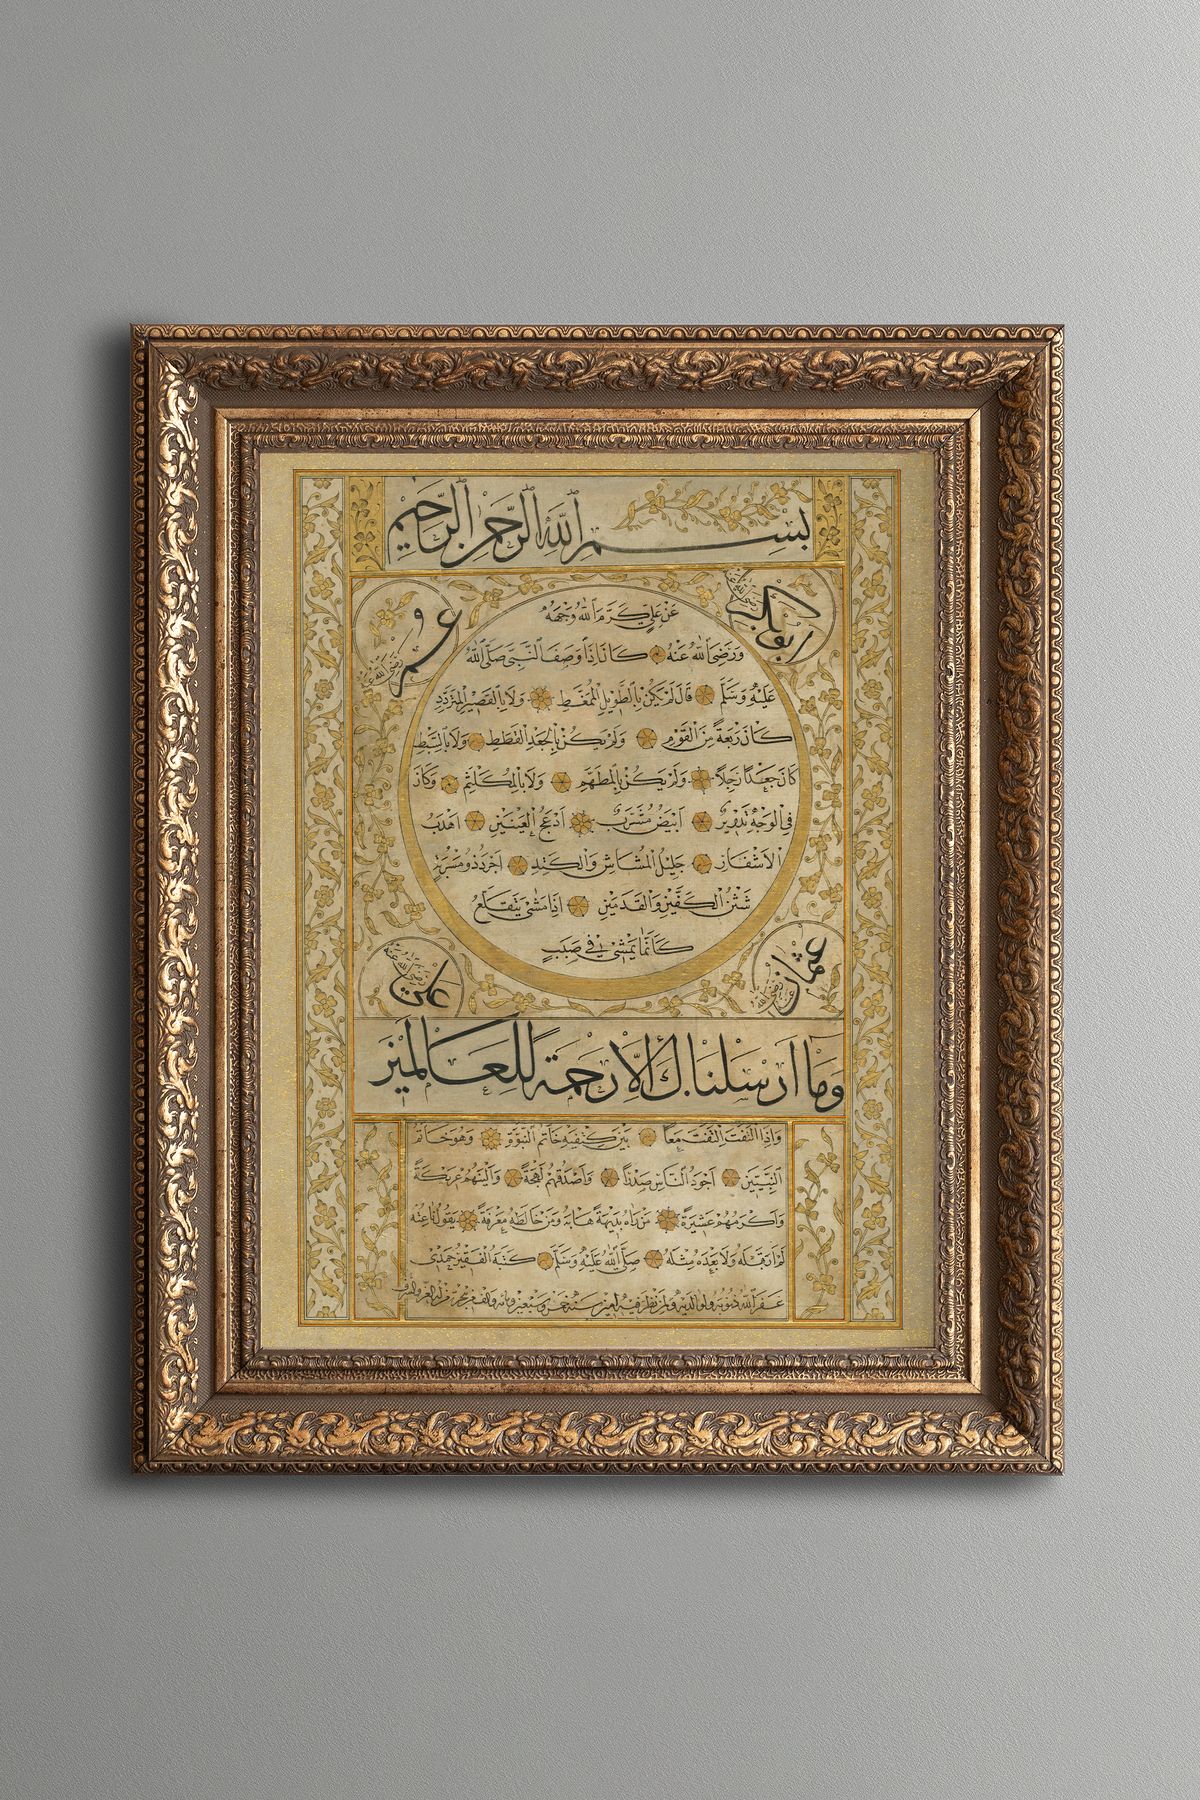 بِسْمِ اللهِ الرَّحْمٰنِ الرَّحِيمِ
ابو بكر رضي الله عنه
عمر رضي الله عنه
عَنْ عَلِيٍّ كَرَّمَ اللهُ وَجْهَهُ
وَرَضِيَ اللهُ عَنْهُ كَانَ اِذَا وَصَفَ النَّبِيَّ صَلَّى اللهُ
عَلَيْهِ وَسَلَّمَ قَالَ لَمْ يَكُنْ بِالطَّوِيلِ الْمُمَّغِطِ وَلَا بِالْقَصِيرِ الْمُتَرَدِّدِ
كَانَ رَبْعَةً مِنَ الْقَوْمِ وَلَمْ يَكُنْ بِالْجَعْدِ الْقَطَطِ وَلَا بِالسَّبِطِ
كَانَ جَعْدًا رَجِلًا وَلَمْ يَكُنْ بِالْمُطَهَّمِ وَلَا بِالْمُكَلْثَمِ وَكَانَ
فِي الْوَجْهِ تَدْوِيرٌ اَبْيَضُ مُشْرَبٌ اَدْعَجُ الْعَيْنَيْنِ اَهْدَبُ
الْاَشْفَارِ جَلِيلُ الْمُشَاشِ وَالْكَتَدِ اَجْرَدُ ذُو مَسْرُبَةٍ
شَثْنُ الْكَفَّيْنِ وَالْقَدَمَيْنِ اِذَا مَشَى يَتَقَلَّعُ
كَاَنَّمَا يَمْشِي فِي صَبَبٍ
عثمان رضي الله عنه
علي رضي الله عنه
وَمَا اَرْسَلْنَاكَ اِلَّا رَحْمَةً لِلْعَالَمِينَ
وَاِذَا الْتَفَتَ الْتَفَتَ مَعًا بَيْنَ كَتِفَيْهِ خَاتَمُ النُّبُوَّةِ وَهُوَ خَاتَمُ
النَّبِيِّينَ اَجْوَدُ النَّاسِ صَدْرًا وَاَصْدَقُهُمْ لَهْجَةً وَاَلْيَنُهُمْ عَرِيكَةً
وَاَكْرَمُهُمْ عَشِيرَةً مَنْ رَاٰهُ بَدِيهَةً هَابَهُ وَمَنْ خَالَطَهُ مَعْرِفَةً يَقُولُ نَاعِتُهُ
لَمْ اَرَ قَبْلَهُ وَلَا بَعْدَهُ مِثْلَهُ صَلَّى اللهُ عَلَيْهِ وَسَلَّمَ كَتَبَهُ الْفَقِيرُ حَمْدِي
غَفَرَ اللهُ ذُنُوبَهُ وَلِوَالِدَيْهِ وَلِمَنْ نَظَرَ فِيهِ